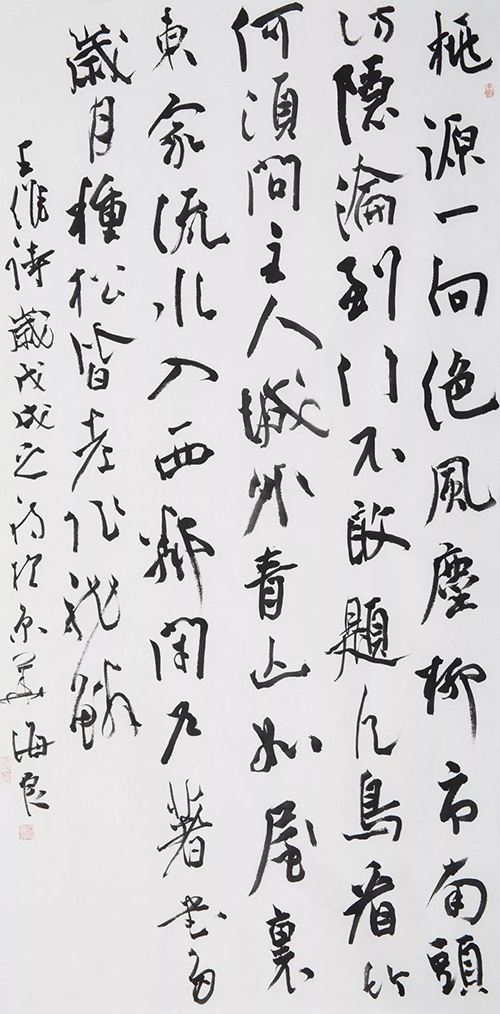 桃源一向絕風塵柳市南頭
訪隱淪到門不敢題凡鳥看竹
何須問主人城外青山如屋裏
東家流水入西鄰閉戶著書多
歲月種松皆老作龍鱗
王維詩歲戊戌之於京華海